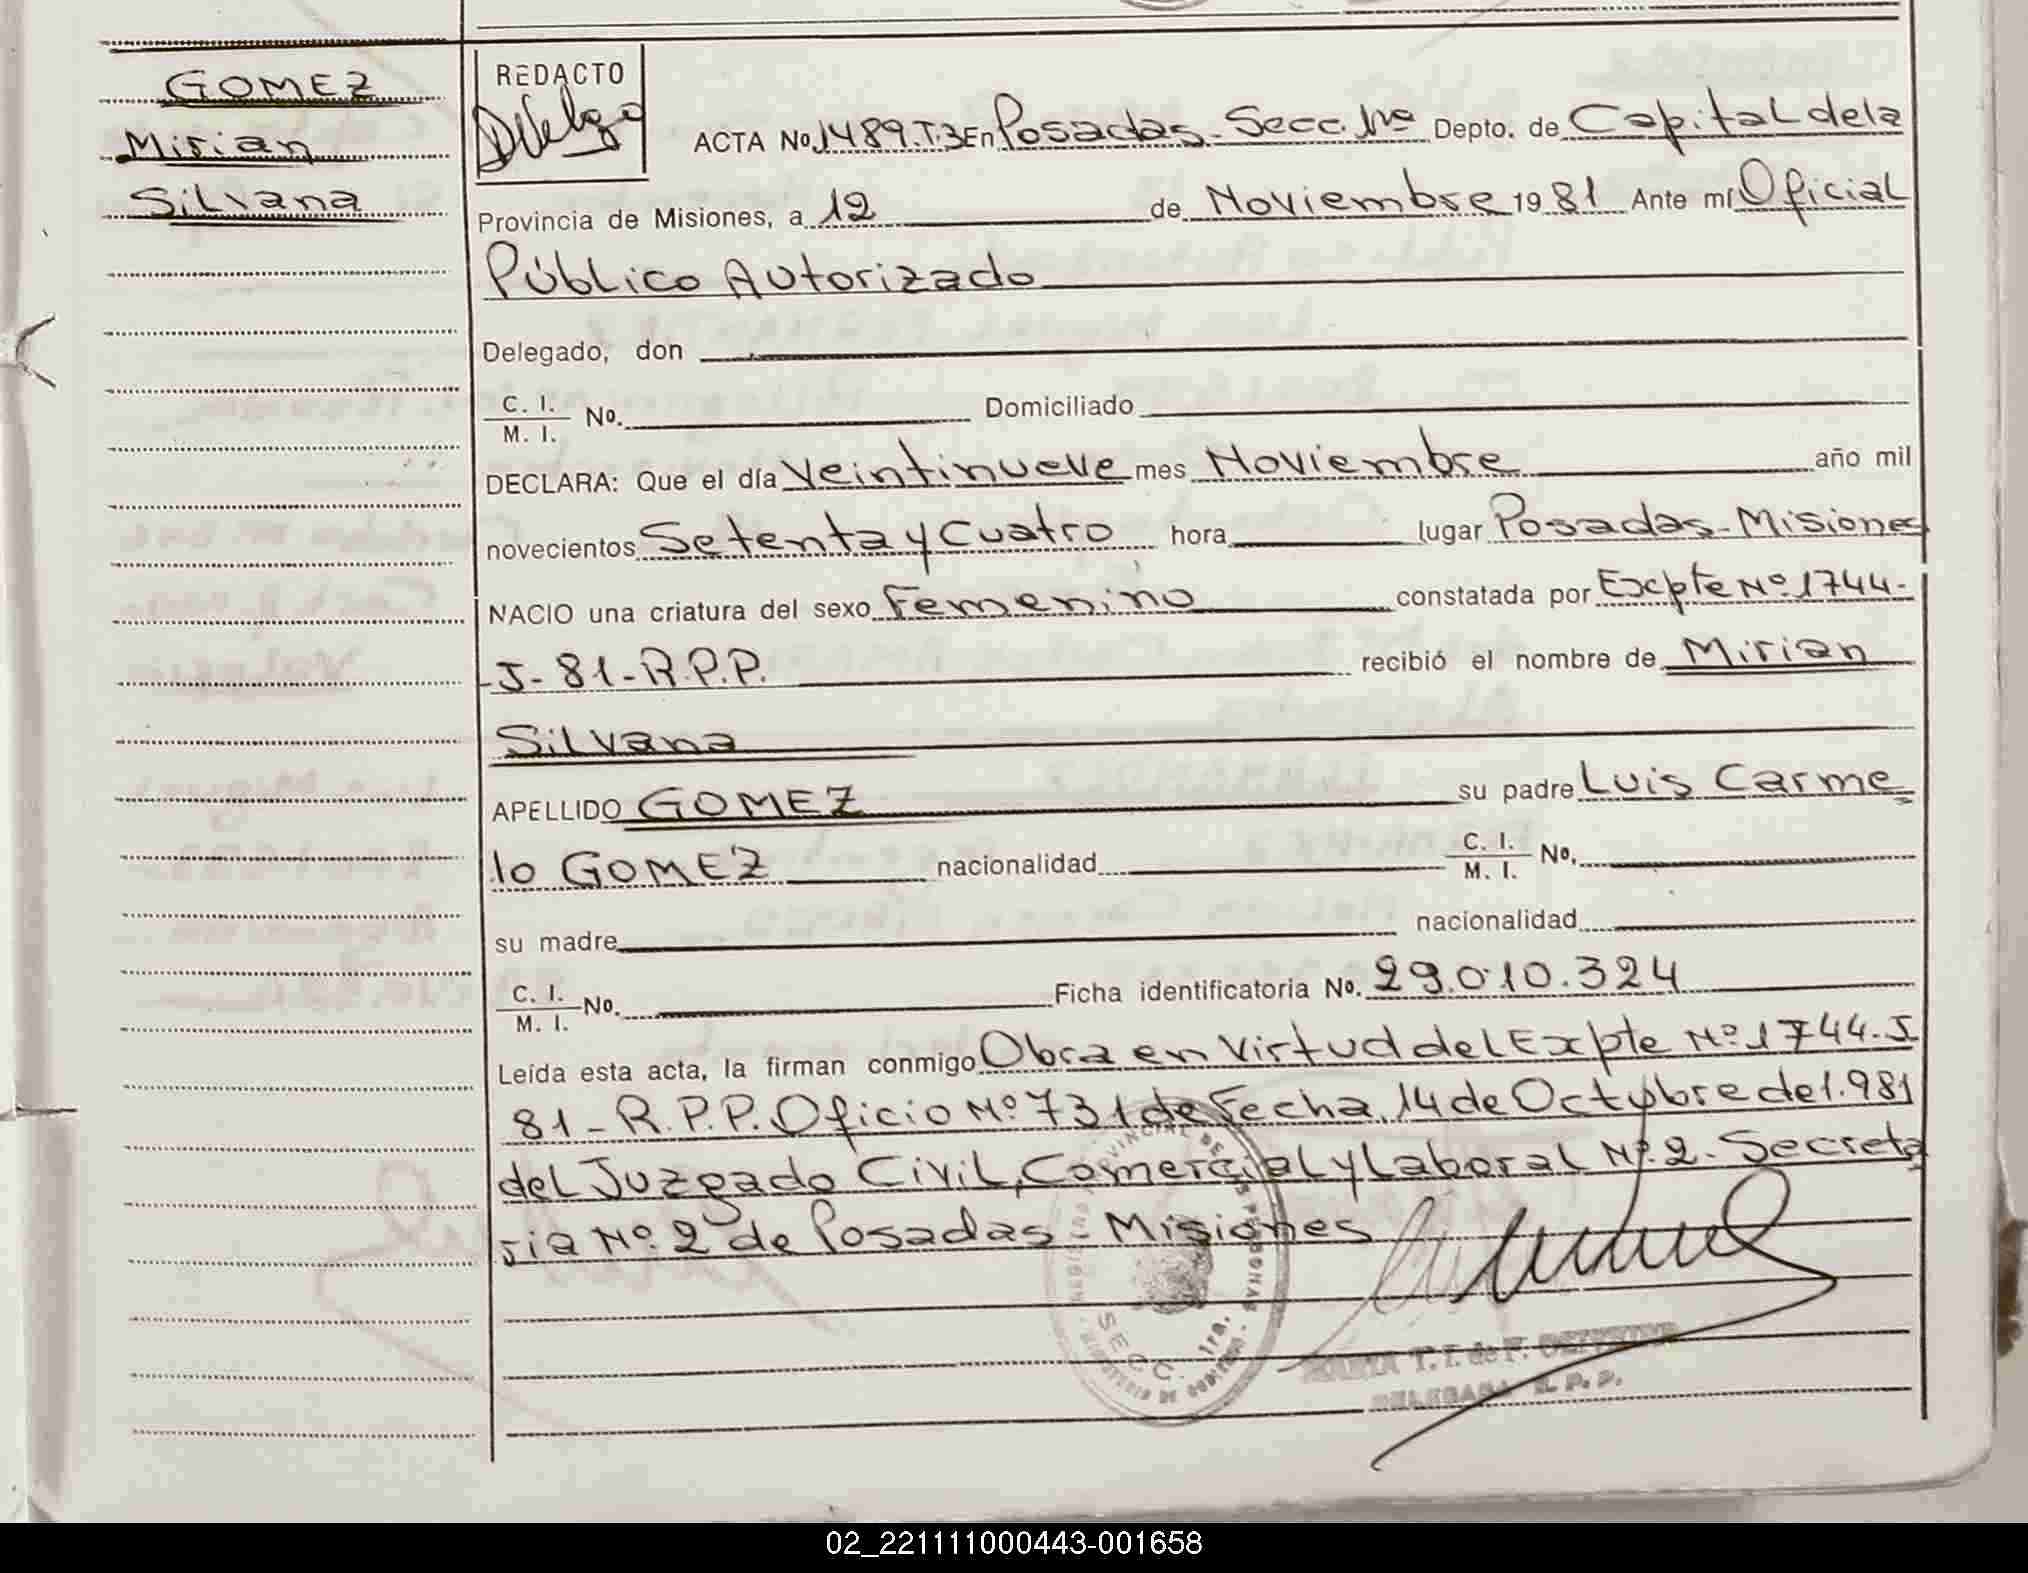 GOMEZ
Mirian
Silvana
REDACTO
ACTA No 1489.T.3 En Posadas-Secc. 1ra Depto. de Capital de la
Provincia de Misiones, a 12 de Noviembre 1981 Ante mí Oficial
Público Autorizado
Delegado, don
C. I.
M. I. No. Domiciliado
DECLARA: Que el día Veintinueve mes Noviembre año mil
novecientos Setenta y Cuatro hora lugar Posadas-Misiones
NACIO una criatura del sexo Femenino constatada por Excpte Nº 1744-
J-81-R.P.P. recibió el nombre de Mirian
Silvana
APELLIDO GOMEZ su padre Luis Carme
lo GOMEZ nacionalidad C. I.
M. I. No.
su madre nacionalidad
C. I.
M. I. No. Ficha identificatoria No. 29.010.324
Leída esta acta, la firman conmigo Obra en Virtud del Expte Nº 1744-J
81-R.P.P. Oficio Nº 731 de Fecha 14 de Octubre de 1.981
del Juzgado Civil, Comercial y Laboral Nº 2-Secreta
ria Nº 2 de Posadas-Misiones
SECC. 1ra.
DELEGADA R. P. P.
02_221111000443-001658